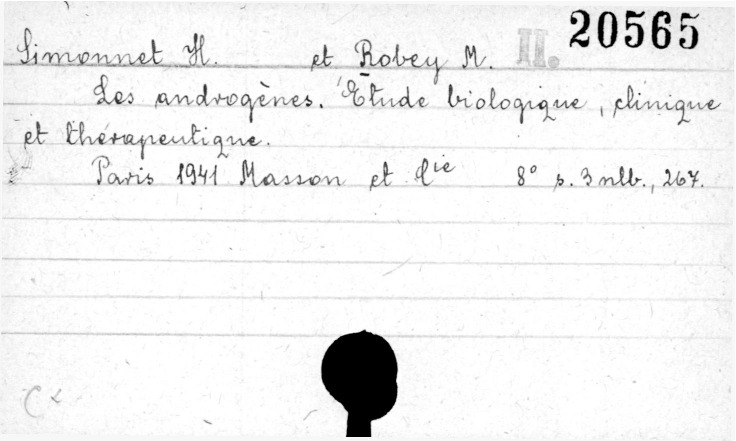 Simonnet H. et Robey M. II. 20565
Les androgènes. Étude biologique, clinique
et thérapeutique.
Paris 1941 Masson et Cie 8° s. 3 nlb., 267.
C x